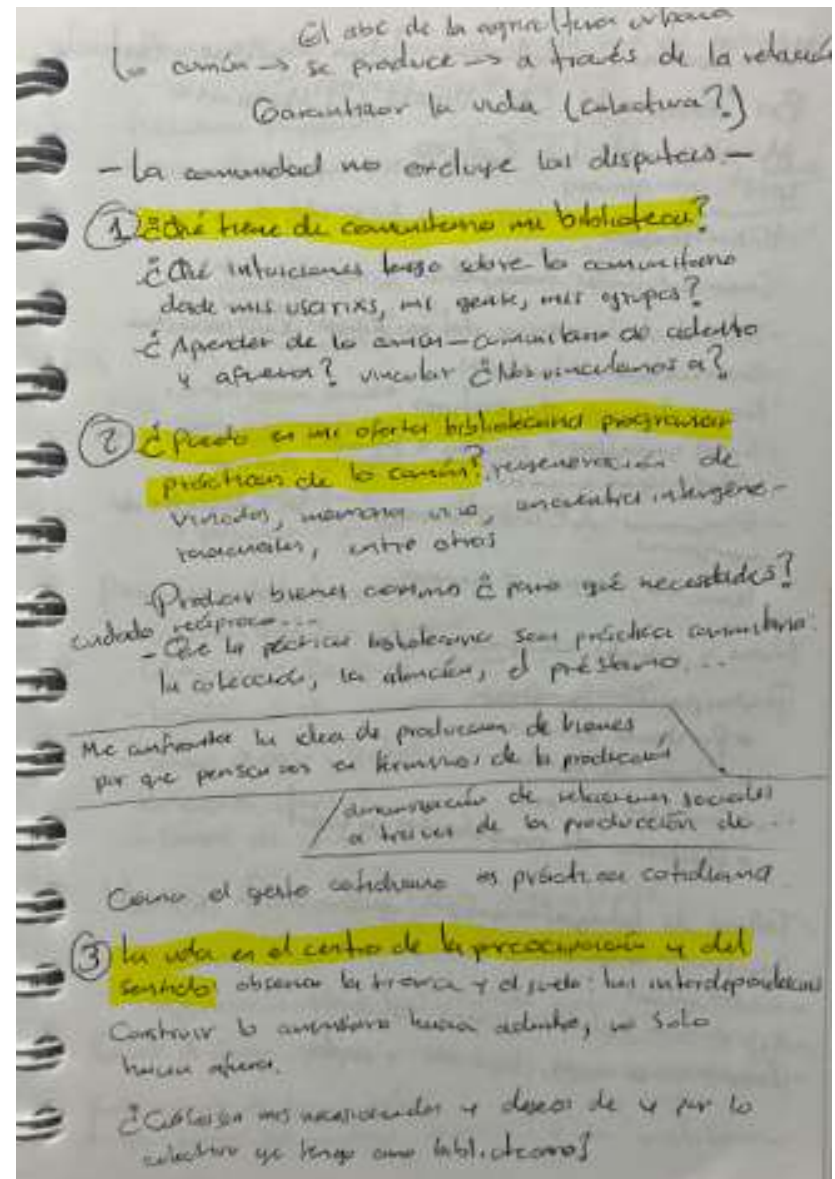 El abc de la agricultura urbana
Lo común → se produce → a través de la relación
Garantizar la vida (colectiva?)
- La comunidad no excluye las disputas. -
① ¿Qué tiene de comunitario mi biblioteca?
¿Qué intuiciones tengo sobre lo comunitario
desde mis usarixs, mi gente, mis grupos?
¿Aprender de lo común-comunitario de adentro
y afuera? vincular ¿Nos vinculamos a?
② ¿Puedo en mi oferta bibliotecaria programar
prácticas de lo común? regeneración de
vínculos, memoria viva, encuentros intergene-
racionales, entre otros
- Producir bienes común ¿para qué necesidades?
cuidado recíproco...
- Que la práctica bibliotecaria sea práctica comunitaria:
la colección, la atención, el préstamo...
Me confronta la idea de producción de bienes
por que pensarnos en términos de la producción
de relaciones sociales
a través de la producción de...
Como el gesto cotidiano es práctica cotidiana
③ La vida en el centro de la preocupación y del
sentido: observar la trama y el suelo: las interdependencias
Construir lo comunitario hacia adentro, no solo
hacia afuera.
¿Cuáles son mis necesidades y deseos de y por lo
colectivo que tengo como bibliotecario?